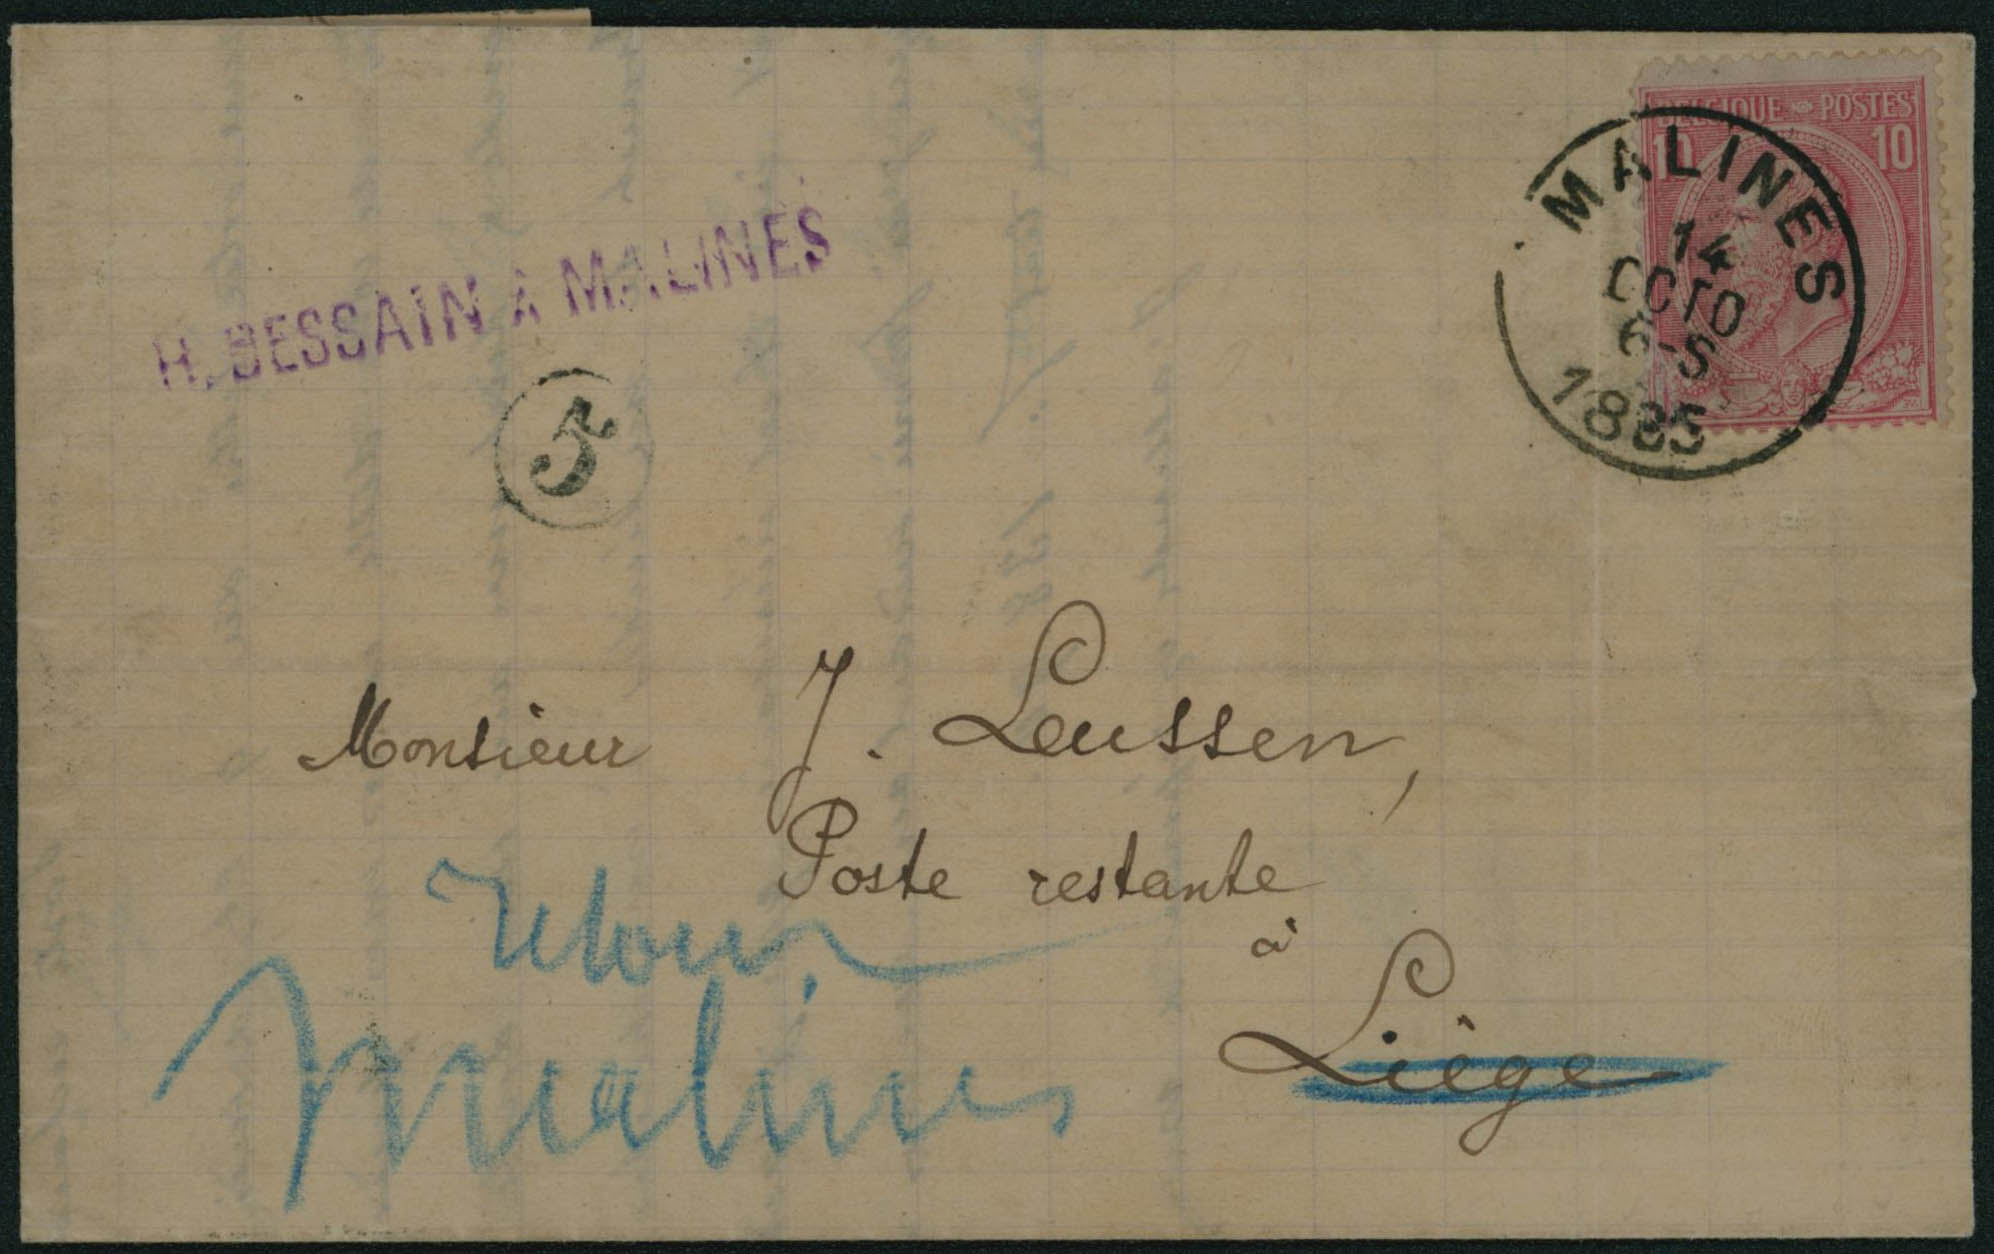 BELGIQUE POSTES
10 10
MALINES
14
OCTO
6-S
1885
H. DESSAIN A MALINES
5
Monsieur J. Leussen,
Poste restante
à
Liège
retour
Malines